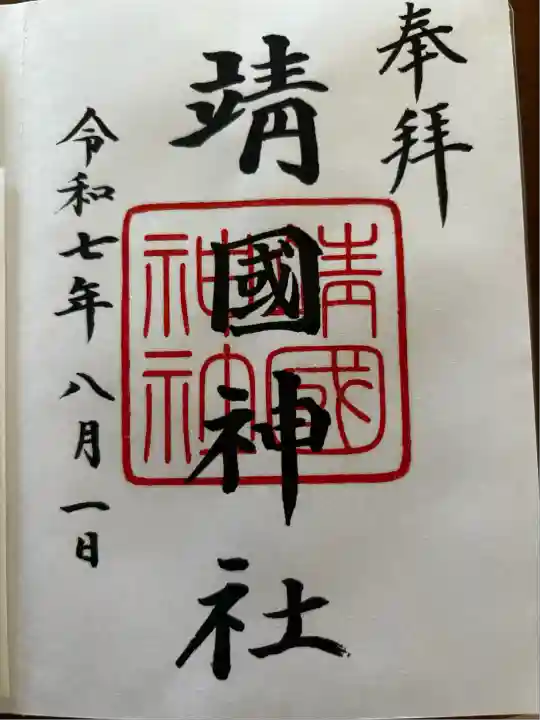 奉拝
靖國神社
靖國
神社
令和七年 八月一日